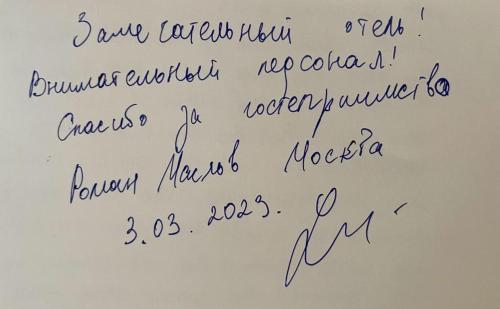 Замечательный отель!
Внимательный персонал!
Спасибо за гостеприимство
Роман Маслов Москва
3.03.2023.